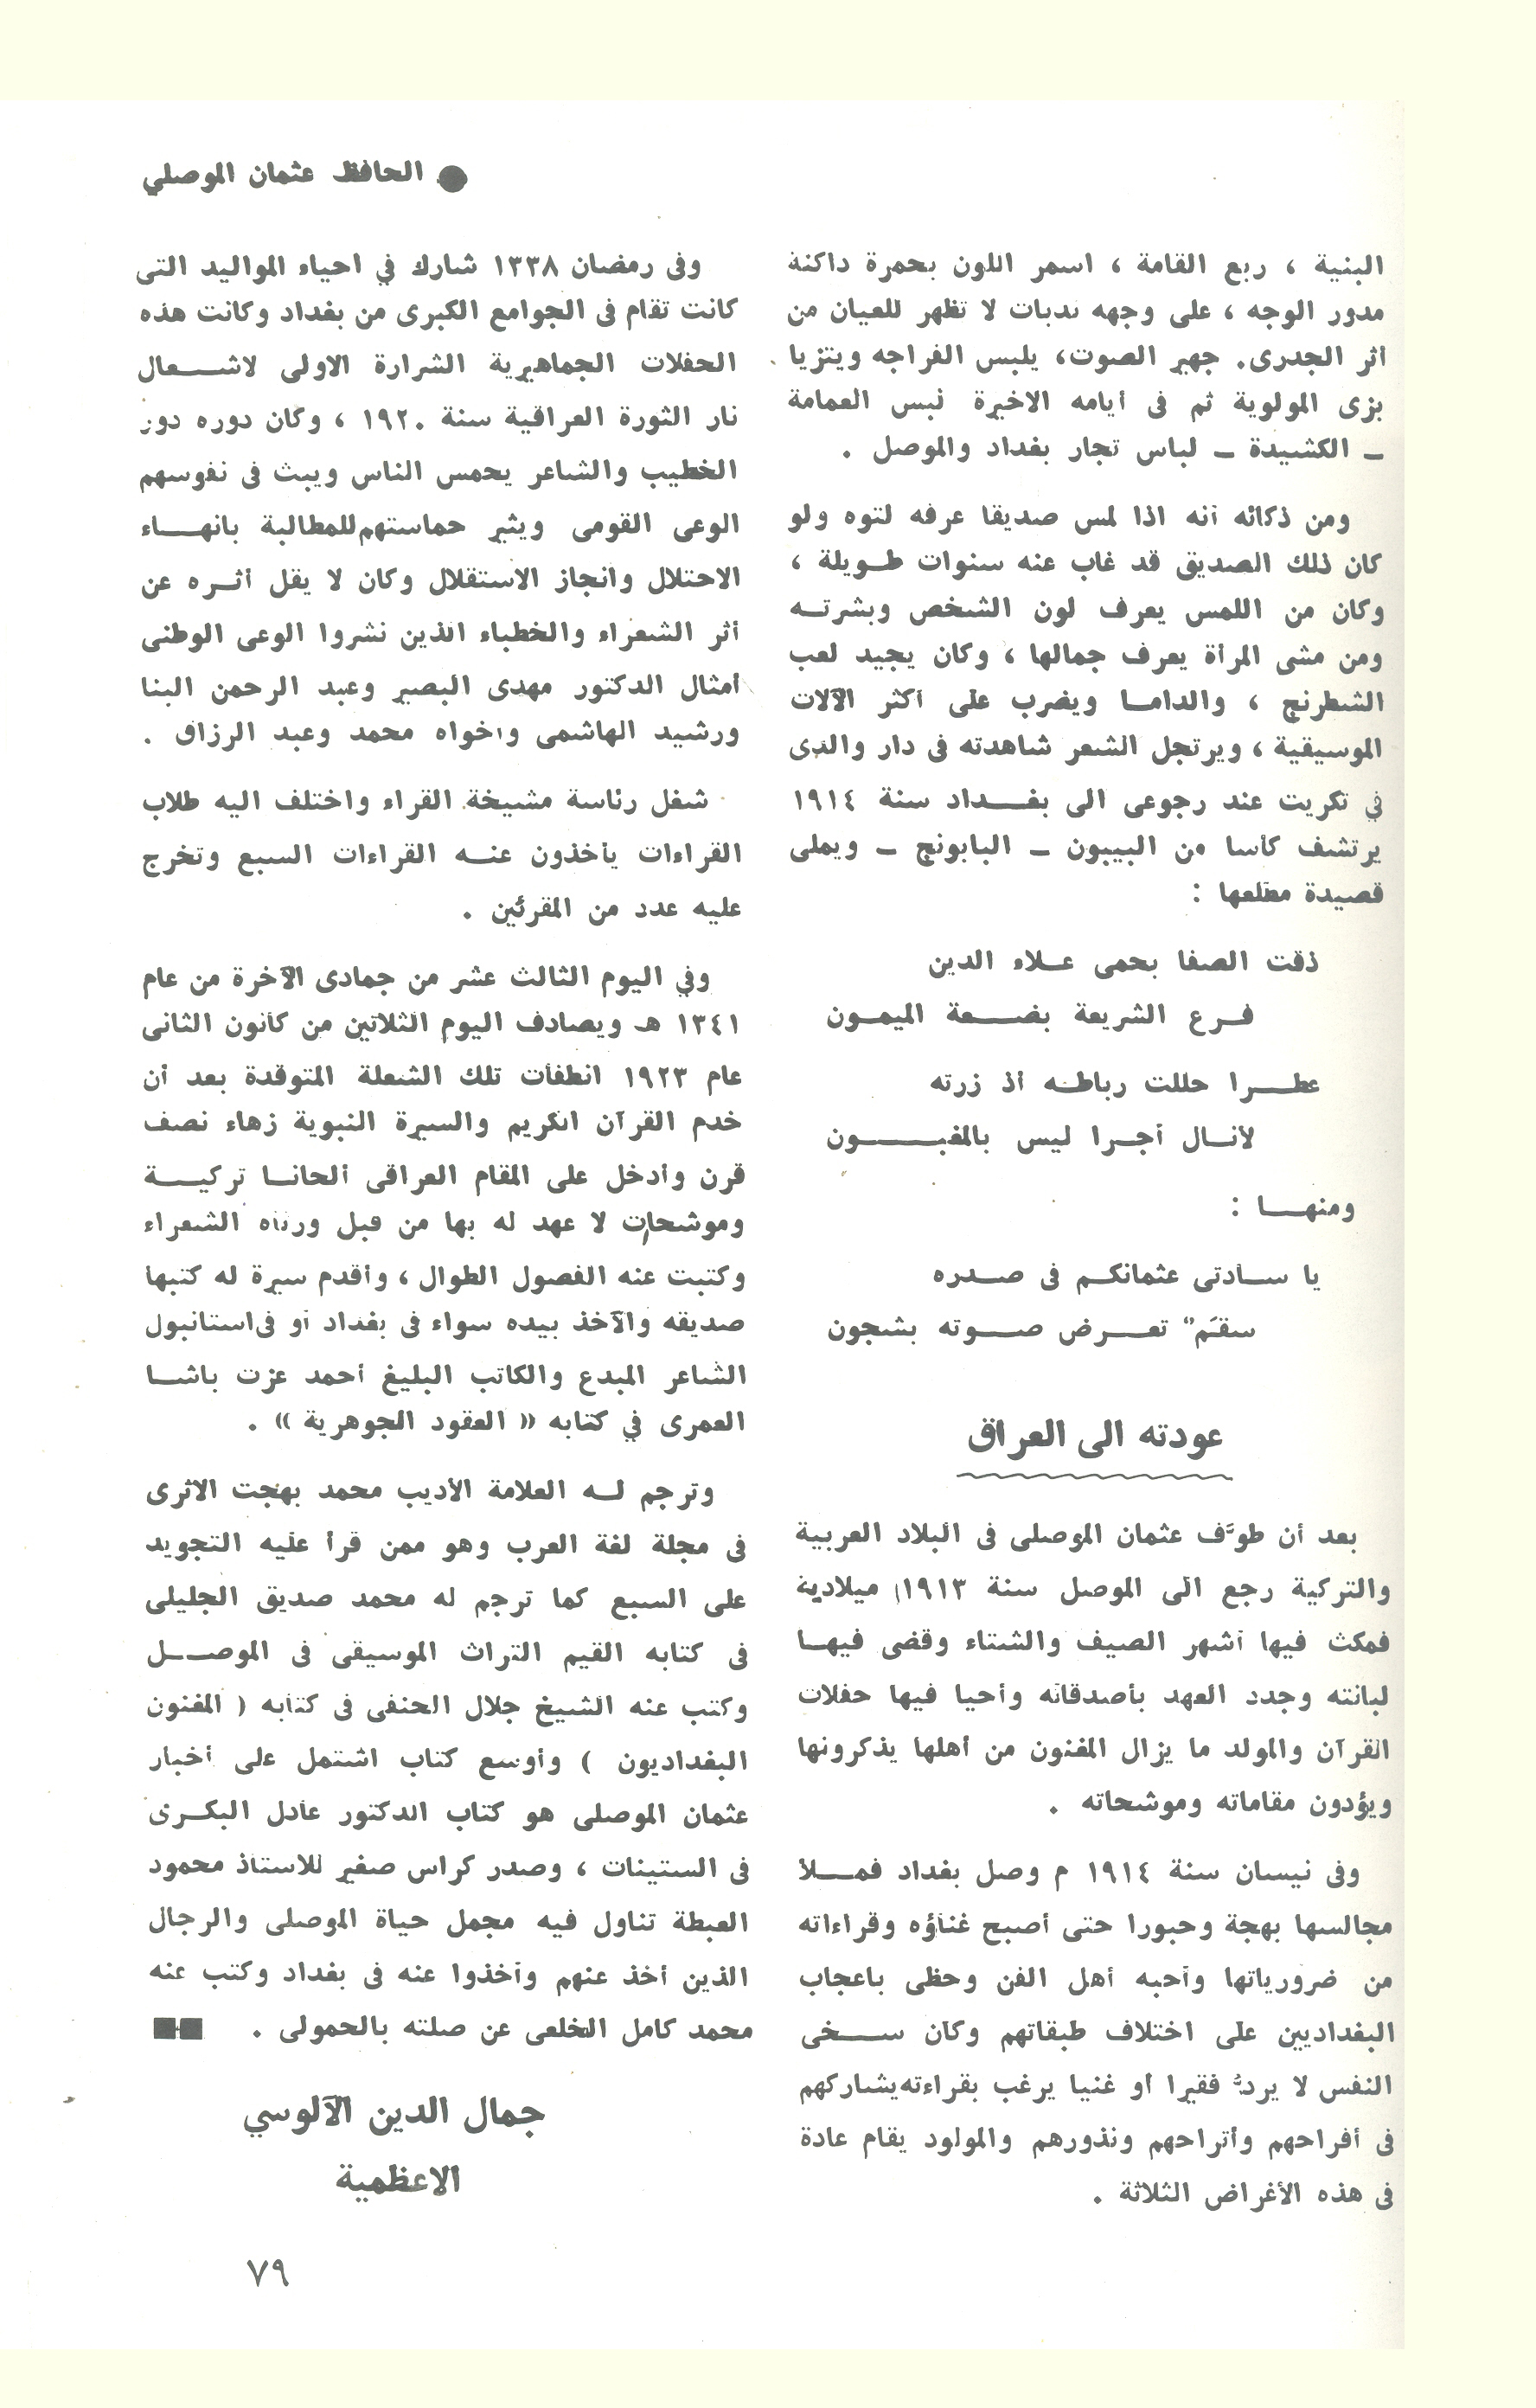 ● الحافظ عثمان الموصلي
البنية ، ربع القامة ، اسمر اللون بحمرة داكنة
مدور الوجه ، على وجهه ندبات لا تظهر للعيان من
اثر الجدرى. جهير الصوت، يلبس الفراجه ويتزيا
بزى المولوية ثم فى أيامه الاخيرة لبس العمامة
ـ الكشيدة ـ لباس تجار بغداد والموصل .
ومن ذكائه أنه اذا لمس صديقا عرفه لتوه ولو
كان ذلك الصديق قد غاب عنه سنوات طـويلة ،
وكان من اللمس يعرف لون الشخص وبشرتـه
ومن مشى المرأة يعرف جمالها ، وكان يجيد لعب
الشطرنج ، والدامـا ويضرب على أكثر الآلات
الموسيقية ، ويرتجل الشعر شاهدته فى دار والدى
في تكريت عند رجوعى الى بغـــداد سنة ١٩١٤
يرتشف كأسا من البيبون ـ البابونج ـ ويملى
قصيدة مطلعها :
ذقت الصفا بحمى عـلاء الدين
فـرع الشريعة بضــعة الميمـون
عطــرا حللت رباطـه أذ زرته
لأنـال أجـرا ليس بالمغبــــون
ومنهــا :
يا سـادتى عثمانكـم فى صـدره
سقَم" تعــرض صــوته بشجون
عودته الى العراق
بعد أن طوَّف عثمان الموصلى فى البلاد العربية
والتركية رجع الى الموصل سنة ١٩١٣ ميلادية
فمكث فيها أشهر الصيف والشتاء وقضى فيهـا
لبانته وجدد العهد بأصدقائه وأحيا فيها حفلات
القرآن والمولد ما يزال المفنون من أهلها يذكرونها
ويؤدون مقاماته وموشحاته .
وفى نيسان سنة ١٩١٤ م وصل بغداد فمـــلأ
مجالسها بهجة وحبورا حتى أصبح غناؤه وقراءاته
من ضرورياتها وأحبه أهل الفن وحظى باعجاب
البغداديين على اختلاف طبقاتهم وكان ســـخى
النفس لا يردُّ فقيرا أو غنيا يرغب بقراءته يشاركهم
فى أفراحهم وأتراحهم ونذورهم والمولود يقام عادة
فى هذه الأغراض الثلاثة .
وفى رمضان ١٣٣٨ شارك في احياء المواليد التى
كانت تقام فى الجوامع الكبرى من بغداد وكانت هذه
الحفلات الجماهيرية الشرارة الاولى لاشــــعال
نار الثورة العراقية سنة ١٩٢٠ ، وكان دوره دور
الخطيب والشاعر يحمس الناس ويبث فى نفوسهم
الوعى القومى ويثير حماستهم للمطالبة بانهـــاء
الاحتلال وانجاز الاستقلال وكان لا يقل أثـره عن
أثر الشعراء والخطباء الذين نشروا الوعى الوطنى
أمثال الدكتور مهدى البصير وعبد الرحمن البنا
ورشيد الهاشمى وأخواه محمد وعبد الرزاق .
شغل رئاسة مشيخة القراء واختلف اليه طلاب
القراءات يأخذون عنـه القراءات السبع وتخرج
عليه عدد من المقرئين .
وفي اليوم الثالث عشر من جمادى الآخرة من عام
١٣٤١ هـ ويصادف اليوم الثلاثين من كانون الثانى
عام ١٩٢٣ انطفأت تلك الشعلة المتوقدة بعد أن
خدم القرآن الكريم والسيرة النبوية زهاء نصف
قرن وأدخل على المقام العراقى ألحانـا تركيـــة
وموشحات لا عهد له بها من قبل ورثاه الشعراء
وكتبت عنه الفصول الطوال ، وأقدم سيرة له كتبها
صديقه والآخذ بيده سواء فى بغداد أو فى استانبول
الشاعر المبدع والكاتب البليغ أحمد عزت باشـا
العمرى في كتابه « العقود الجوهرية » .
وترجم لــه العلامة الأديب محمد بهجت الاثرى
فى مجلة لغة العرب وهو ممن قرأ عليه التجويد
على السبع كما ترجم له محمد صديق الجليلى
فى كتابه القيم التراث الموسيقى فى الموصـــل
وكتب عنه الشيخ جلال الحنفى فى كتابه ( المغنون
البغداديون ) وأوسع كتاب اشتمل على أخبار
عثمان الموصلى هو كتاب الدكتور عادل البكـرى
فى الستينات ، وصدر كراس صغير للاستاذ محمود
العبطة تناول فيه مجمل حياة الموصلى والرجال
الذين أخذ عنهم وأخذوا عنه فى بغداد وكتب عنه
محمد كامل الخلعى عن صلته بالحمولى . ■■
جمال الدين الآلوسي
الاعظمية
٧٩